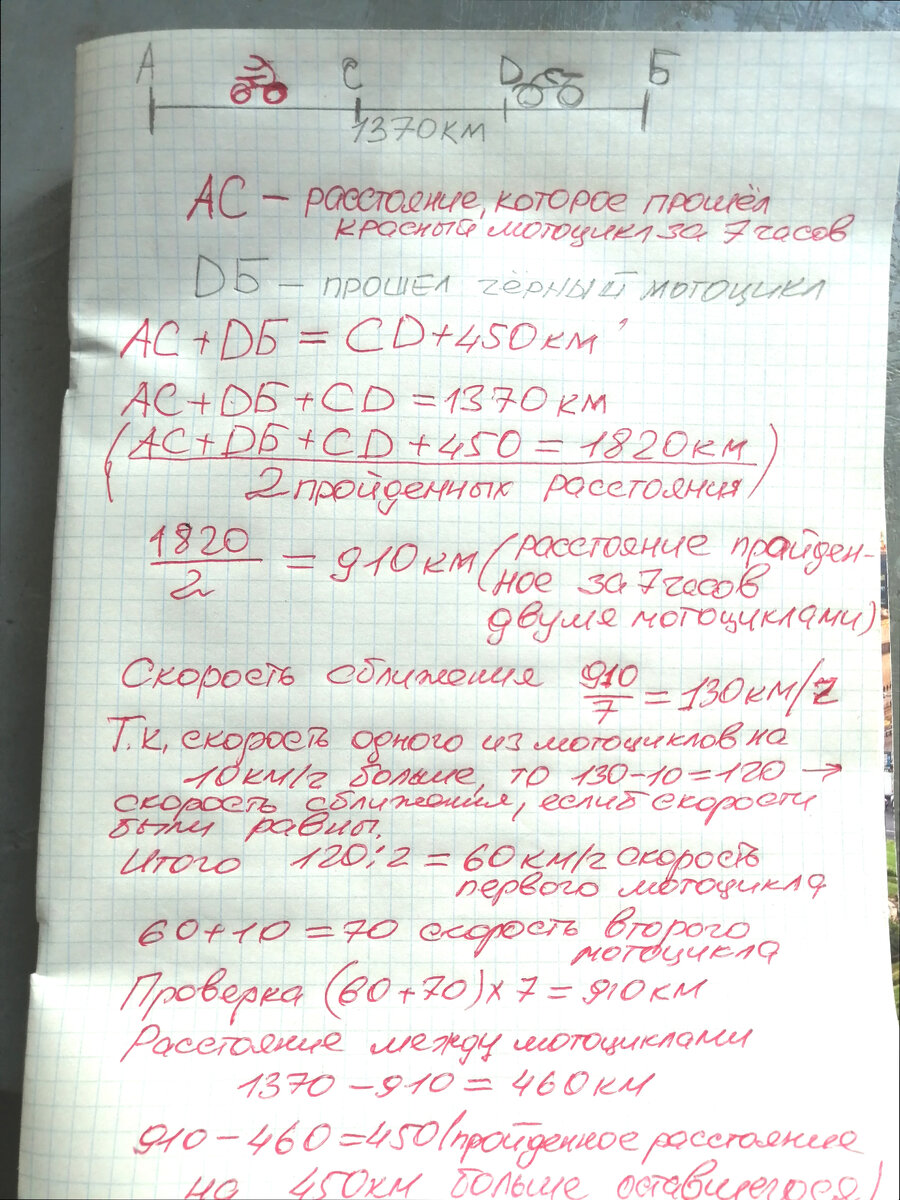 А С D Б
1370км
АС – расстояние, которое прошёл
красный мотоцикл за 7 часов
DБ – прошел чёрный мотоцикл
АС+DБ = CD+450км
АС+DБ+CD =1370км
(АС+DБ+CD+450=1820км
2 пройденных расстояния)
1820/2 = 910км (расстояние пройден-
ное за 7 часов
двумя мотоциклами)
Скорость сближения 910/7 = 130км/ч
Т.к. скорость одного из мотоциклов на
10км/ч больше, то 130-10=120 →
скорость сближения, если б скорости
были равны.
Итого 120:2 = 60км/ч скорость
первого мотоцикла
60+10=70 скорость второго
мотоцикла
Проверка (60+70)×7=910км
Расстояние между мотоциклами
1370-910=460км
910-460=450(пройденное расстояние
на 450км больше оставшегося)